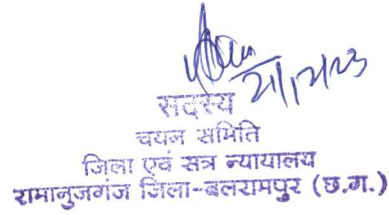 सदस्य
चयन समिति
जिला एवं सत्र न्यायालय
रामानुजगंज जिला-बलरामपुर (छ.ग.)